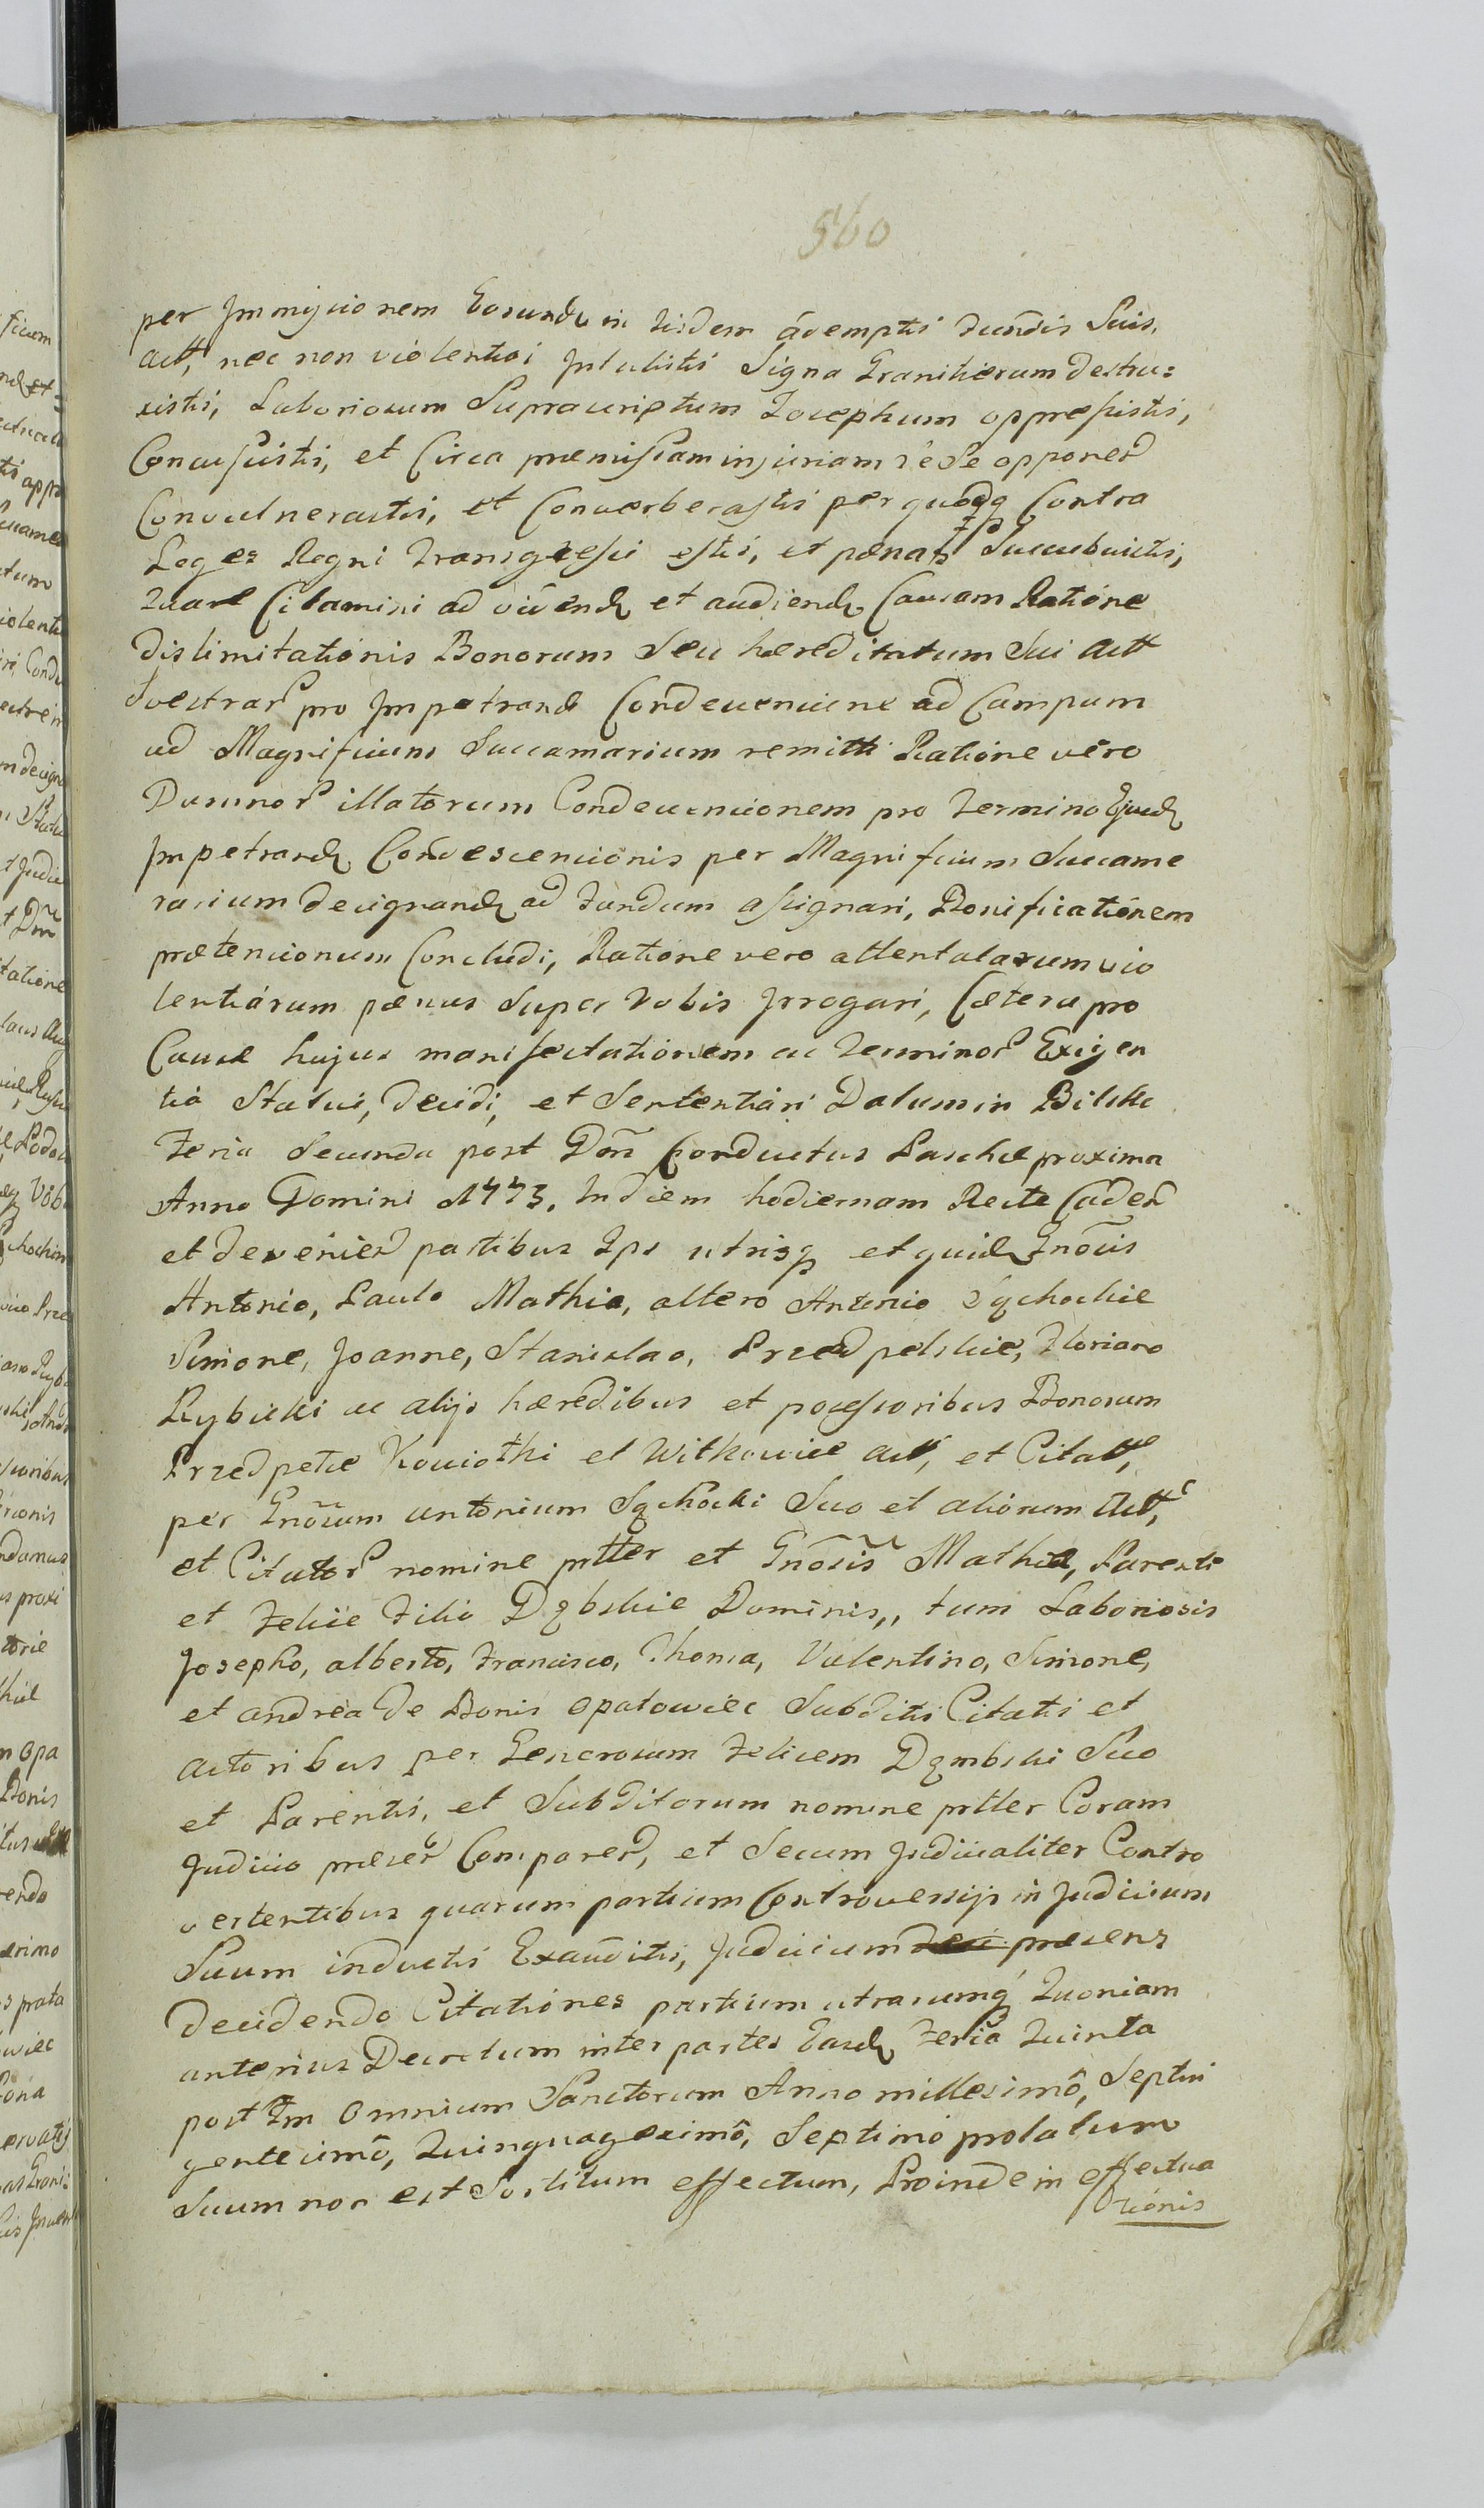 560
per Immissionem Eorund in iisdem ademptis Fundis Suis,
Actt, nec non violentiri Intulistis Signa Granitierum destru=
xistis, Laboriosum Suprascriptum Josephum oppressistis,
Concussistis, et Circa præmissam injuriam se se opponed
Convulnerastis, et Converberastis per quodq Contra
Leges Regni Transgressi estis, et pœnas Succubuistis,
Quare Citamini ad videnq et audiendq Causam Ratione
dislimitationis Bonorum Seu hæreditatum Sui Actt
vestrar pro Impetrand Condescensione ad Campum
ad Magnificum Succamarium remitti Ratione vero
Damnor illatorum Condescensionem pro Termino Ejusdq
Impetrandq Condescensionis per Magnificum Succame
rarium designandq ad Fundum assignari, Bonificationem
prætensionum Concludi, Ratione vero attentatarum vio
lentiarum pænas Super Vobis Irrogari, Cætera pro
Causæ hujus manifestationem ac Terminor Exigen
tia Statui, decidi, et Sententiari Datum in Bilsko
Feria Secunda post Dom Conductus Paschæ proxima
Anno Domini 1773. In diem hodiernam Recte Caded
et devenied partibus Ips utrisq et quidq Gnosis
Antonio, Paulo Mathia, altero Antonio Sąchockie
Simone, Joanne, Stanislao, Przedpelskie, Floriano
Rybicki ac alijs hæredibus et possessoribus Bonorum
Przedpełce Kowiotki et Witkowice Act, et Citatt,
per Gnosum Antonium Sąchocki Suo et aliorum Act,
et Citator nomine ptter et Gnosis Mathia, Parente
et Felice Filio Dąbskie Dominis,, tum Laboriosis
Josepho, alberto, Francisco, Thoma, Valentino, Simone,
et andrea de Bonis Opatowiec Subditis Citatis et
actoribus per Generosum Felicem Dąmbski Suo
et Parentis, et Subditorum nomine ptter Coram
Judicio præsed Compared, et Secum Judicialiter Contro
vertentibus quarum partium Controversijs in Judicium
Suum inductis Exauditis, Judicium præsens
decidendo Citationes partium utrarumq Quoniam
anterius Decretum inter partes Easdq Feria Quinta
post Fm Omnium Sanctorum Anno millesimo, Septin
gentesimo, Quinquagesimo, Septimo prolatum
Suum non est Sortitum effectum, Proinde in effectua
tionis